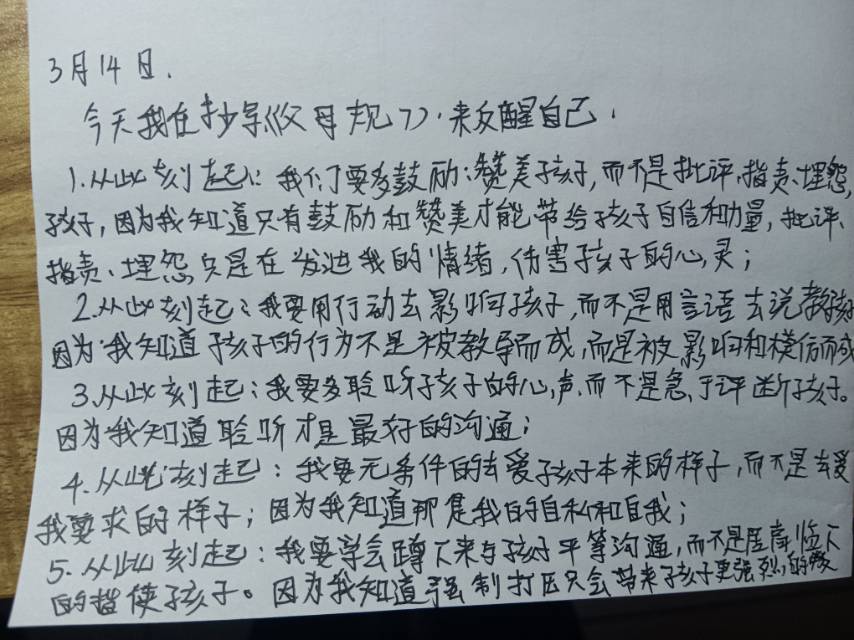 3月14日.
今天我在抄写《父母规》.来反醒自己.
1.从此刻起:我们要多鼓励:赞美孩子,而不是批评、指责、埋怨,
孩子,因为我知道只有鼓励和赞美才能带给孩子自信和力量,批评、
指责、埋怨只是在发泄我的情绪,伤害孩子的心灵;
2.从此刻起:我要用行动去影响孩子,而不是用言语去说教孩
因为我知道孩子的行为不是被教导而成,而是被影响和模仿而成
3.从此刻起:我要多聆听孩子的心声,而不是急于评断孩子。
因为我知道聆听才是最好的沟通;
4.从此刻起:我要无条件的去爱孩子本来的样子,而不是去爱
我要求的样子;因为我知道那是我的自私和自我;
5.从此刻起:我要学会蹲下来与孩子平等沟通,而不是居高临下
的指使孩子。因为我知道强制打压只会带来孩子更强烈的